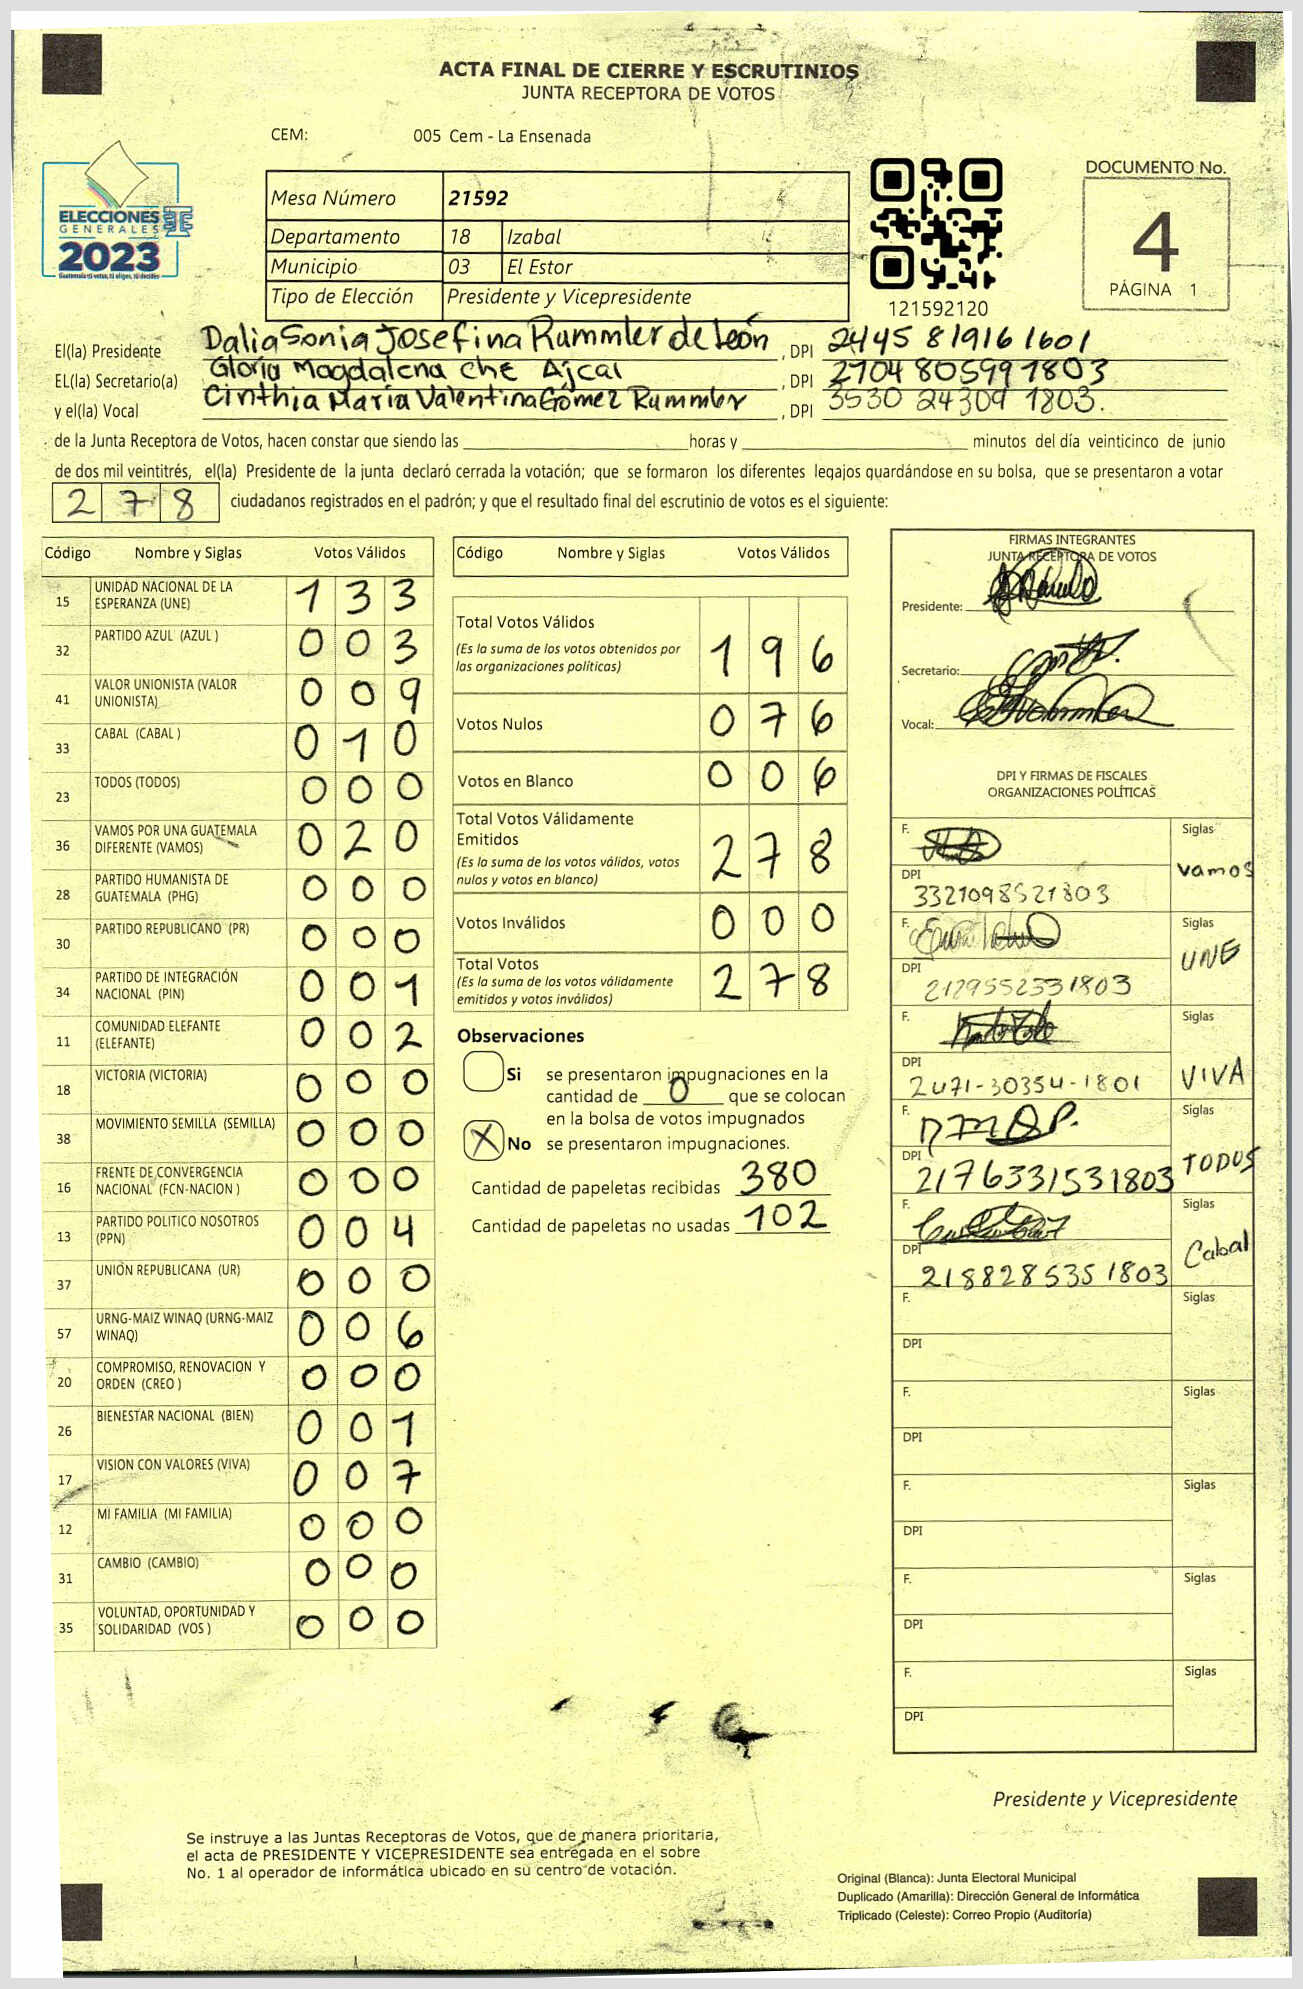 ACTA FINAL DE CIERRE Y ESCRUTINIOS
JUNTA RECEPTORA DE VOTOS
CEM: 005 Cem - La Ensenada
ELECCIONES TSE
GENERALES
2023
Guatemala tú votas, tú eliges, tú decides
Mesa Número 21592
Departamento 18 Izabal
Municipio 03 El Estor
Tipo de Elección Presidente y Vicepresidente
121592120
DOCUMENTO No.
4
PÁGINA 1
El(la) Presidente Dalia Sonia Josefina Rummler de León, DPI 2445 81916 1601
EL(la) Secretario(a) Gloria Magdalena Che Ajcal, DPI 2704 80599 1803
y el(la) Vocal Cinthia María Valentina Gómez Rummler, DPI 3530 24309 1803.
de la Junta Receptora de Votos, hacen constar que siendo las horas y minutos del día veinticinco de junio
de dos mil veintitrés, el(la) Presidente de la junta declaró cerrada la votación; que se formaron los diferentes legajos guardándose en su bolsa, que se presentaron a votar
278 ciudadanos registrados en el padrón; y que el resultado final del escrutinio de votos es el siguiente:
Código Nombre y Siglas Votos Válidos
15 UNIDAD NACIONAL DE LA ESPERANZA (UNE) 133
32 PARTIDO AZUL (AZUL ) 003
41 VALOR UNIONISTA (VALOR UNIONISTA) 009
33 CABAL (CABAL ) 010
23 TODOS (TODOS) 000
36 VAMOS POR UNA GUATEMALA DIFERENTE (VAMOS) 020
28 PARTIDO HUMANISTA DE GUATEMALA (PHG) 000
30 PARTIDO REPUBLICANO (PR) 000
34 PARTIDO DE INTEGRACIÓN NACIONAL (PIN) 001
11 COMUNIDAD ELEFANTE (ELEFANTE) 002
18 VICTORIA (VICTORIA) 000
38 MOVIMIENTO SEMILLA (SEMILLA) 000
16 FRENTE DE CONVERGENCIA NACIONAL (FCN-NACION ) 000
13 PARTIDO POLITICO NOSOTROS (PPN) 004
37 UNIÓN REPUBLICANA (UR) 000
57 URNG-MAIZ WINAQ (URNG-MAIZ WINAQ) 006
20 COMPROMISO, RENOVACION Y ORDEN (CREO ) 000
26 BIENESTAR NACIONAL (BIEN) 001
17 VISION CON VALORES (VIVA) 007
12 MI FAMILIA (MI FAMILIA) 000
31 CAMBIO (CAMBIO) 000
35 VOLUNTAD, OPORTUNIDAD Y SOLIDARIDAD (VOS ) 000
Código Nombre y Siglas Votos Válidos
Total Votos Válidos 196
(Es la suma de los votos obtenidos por
las organizaciones políticas)
Votos Nulos 076
Votos en Blanco 006
Total Votos Válidamente
Emitidos 278
(Es la suma de los votos válidos, votos
nulos y votos en blanco)
Votos Inválidos 000
Total Votos 278
(Es la suma de los votos válidamente
emitidos y votos inválidos)
Observaciones
Si se presentaron impugnaciones en la
cantidad de 0 que se colocan
en la bolsa de votos impugnados
X No se presentaron impugnaciones.
Cantidad de papeletas recibidas 380
Cantidad de papeletas no usadas 102
FIRMAS INTEGRANTES
JUNTA RECEPTORA DE VOTOS
Presidente:
Secretario:
Vocal:
DPI Y FIRMAS DE FISCALES
ORGANIZACIONES POLÍTICAS
F. Siglas Vamos
DPI 3321098521803
F. Siglas UNE
DPI 2129552331803
F. Siglas VIVA
DPI 2471-30354-1801
F. Siglas TODOS
DPI 2176331531803
F. Siglas Cabal
DPI 2188285351803
F. Siglas
DPI
F. Siglas
DPI
F. Siglas
DPI
F. Siglas
DPI
F. Siglas
DPI
Presidente y Vicepresidente
Se instruye a las Juntas Receptoras de Votos, que de manera prioritaria,
el acta de PRESIDENTE Y VICEPRESIDENTE sea entregada en el sobre
No. 1 al operador de informática ubicado en su centro de votación.
Original (Blanca): Junta Electoral Municipal
Duplicado (Amarilla): Dirección General de Informática
Triplicado (Celeste): Correo Propio (Auditoría)